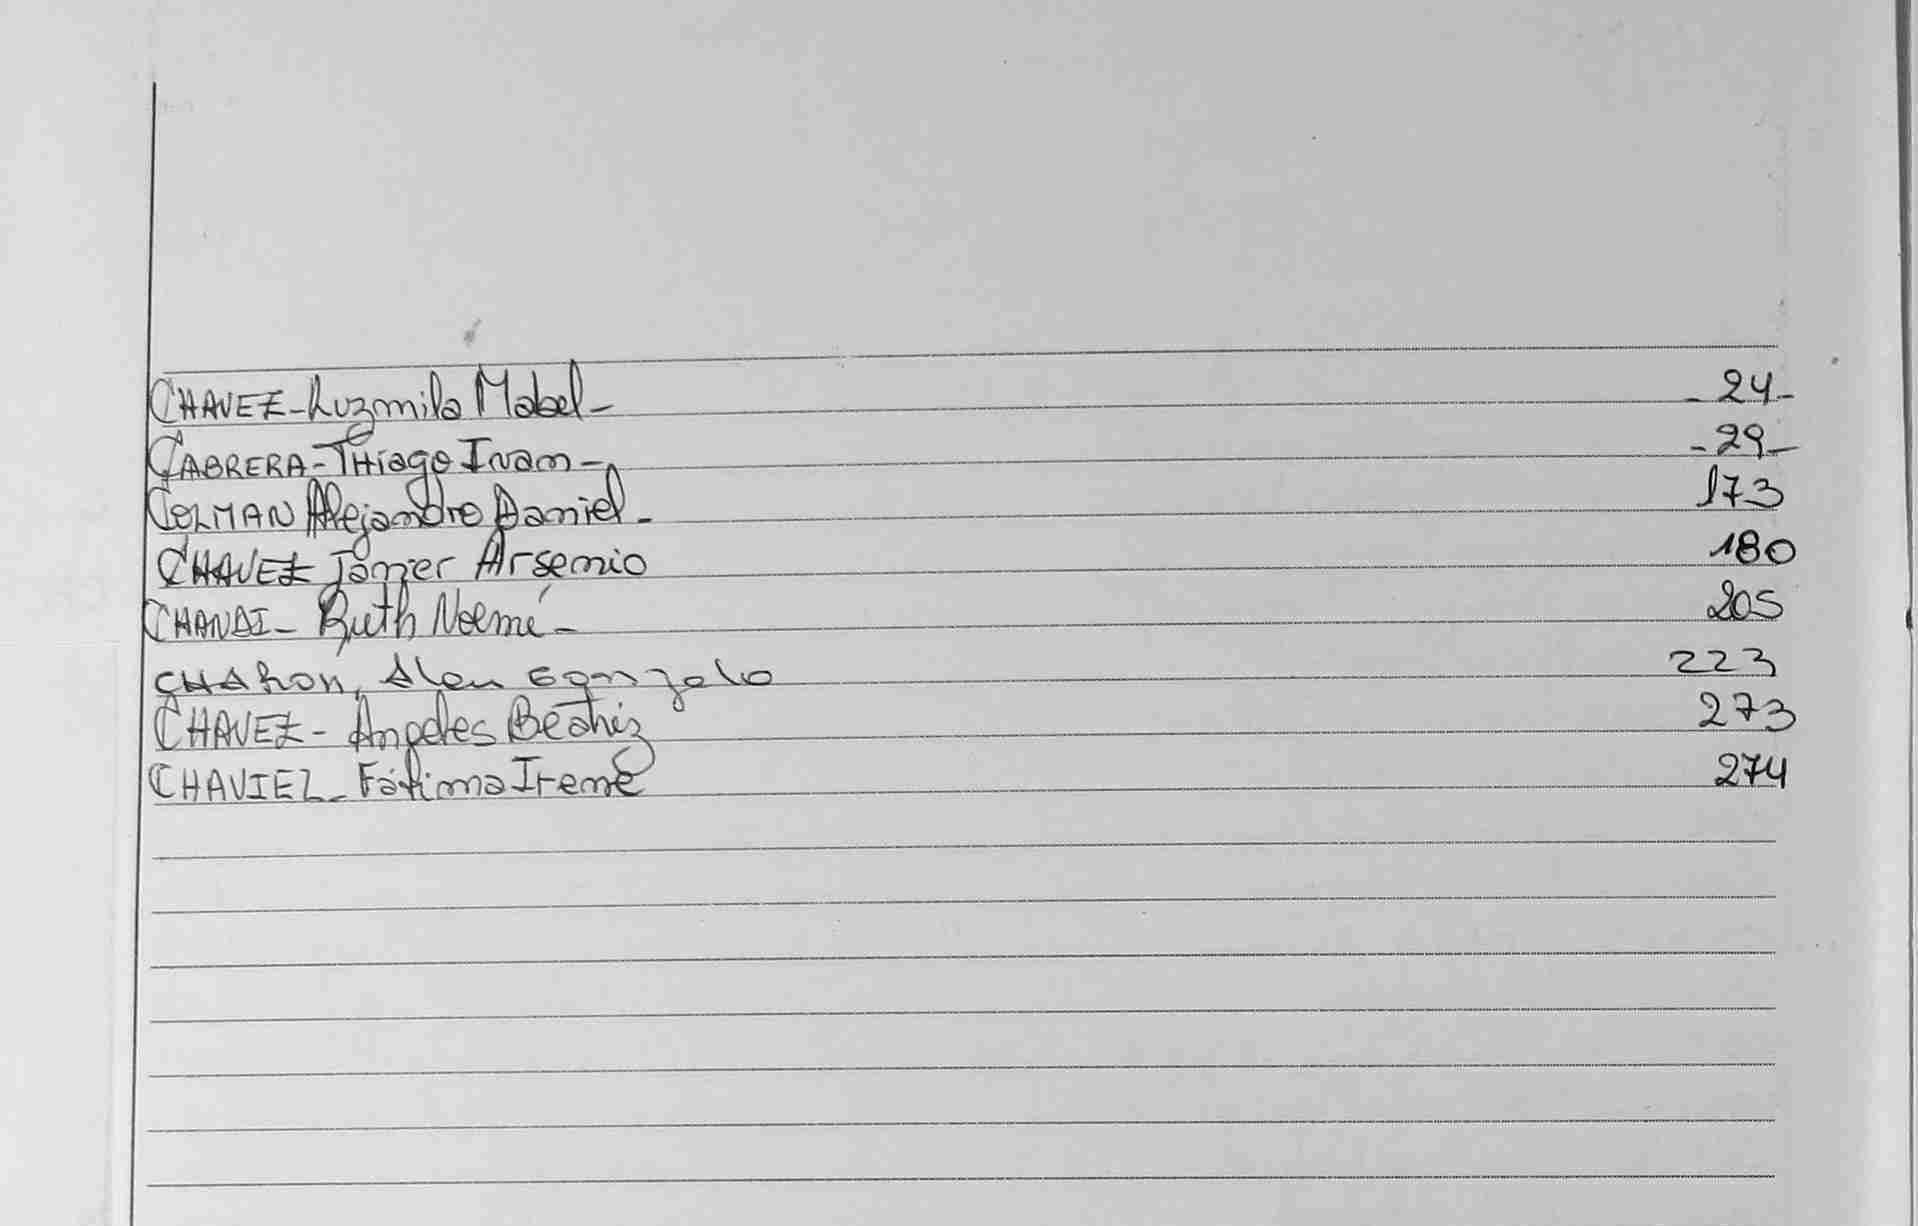 CHAVEZ-Luzmila Mabel- -24-
CABRERA-THiago Ivan- -29-
COLMAN Alejandro Daniel- 173
CHAVEZ Arsenio 180
Ruth Noemí- 205
Alen Gonzalo 223
CHAVEZ- Angeles Beatriz 273
CHAVIEZ- Fátima Irene 274